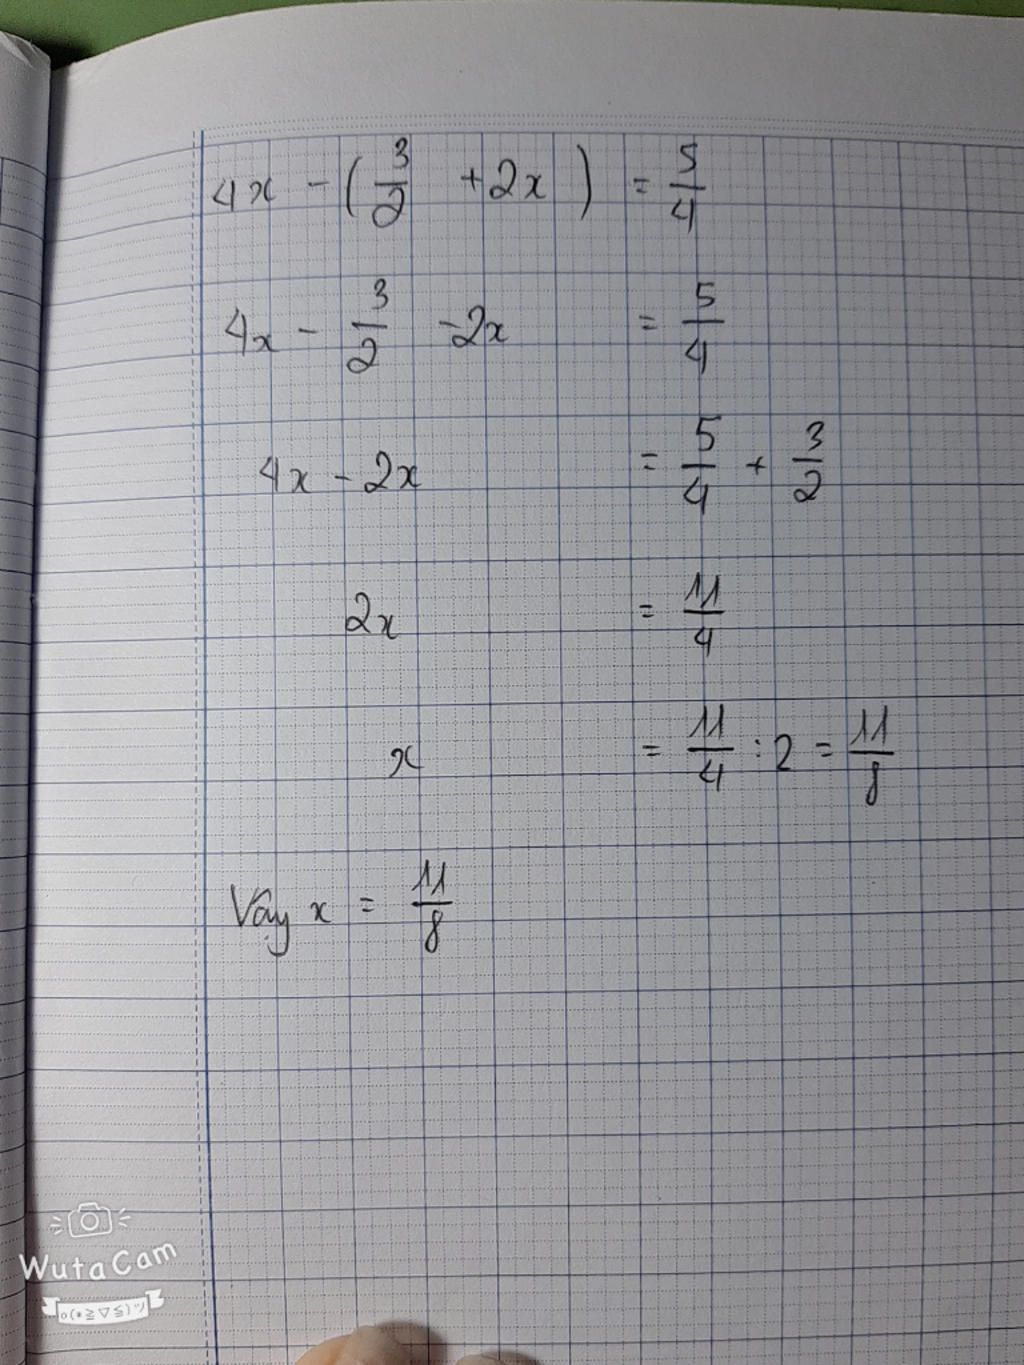 4x - (3/2 + 2x) = 5/4
4x - 3/2 - 2x = 5/4
4x - 2x = 5/4 + 3/2
2x = 11/4
x = 11/4 : 2 = 11/8
Vậy x = 11/8
WutaCam
o(*≧▽≦)ツ